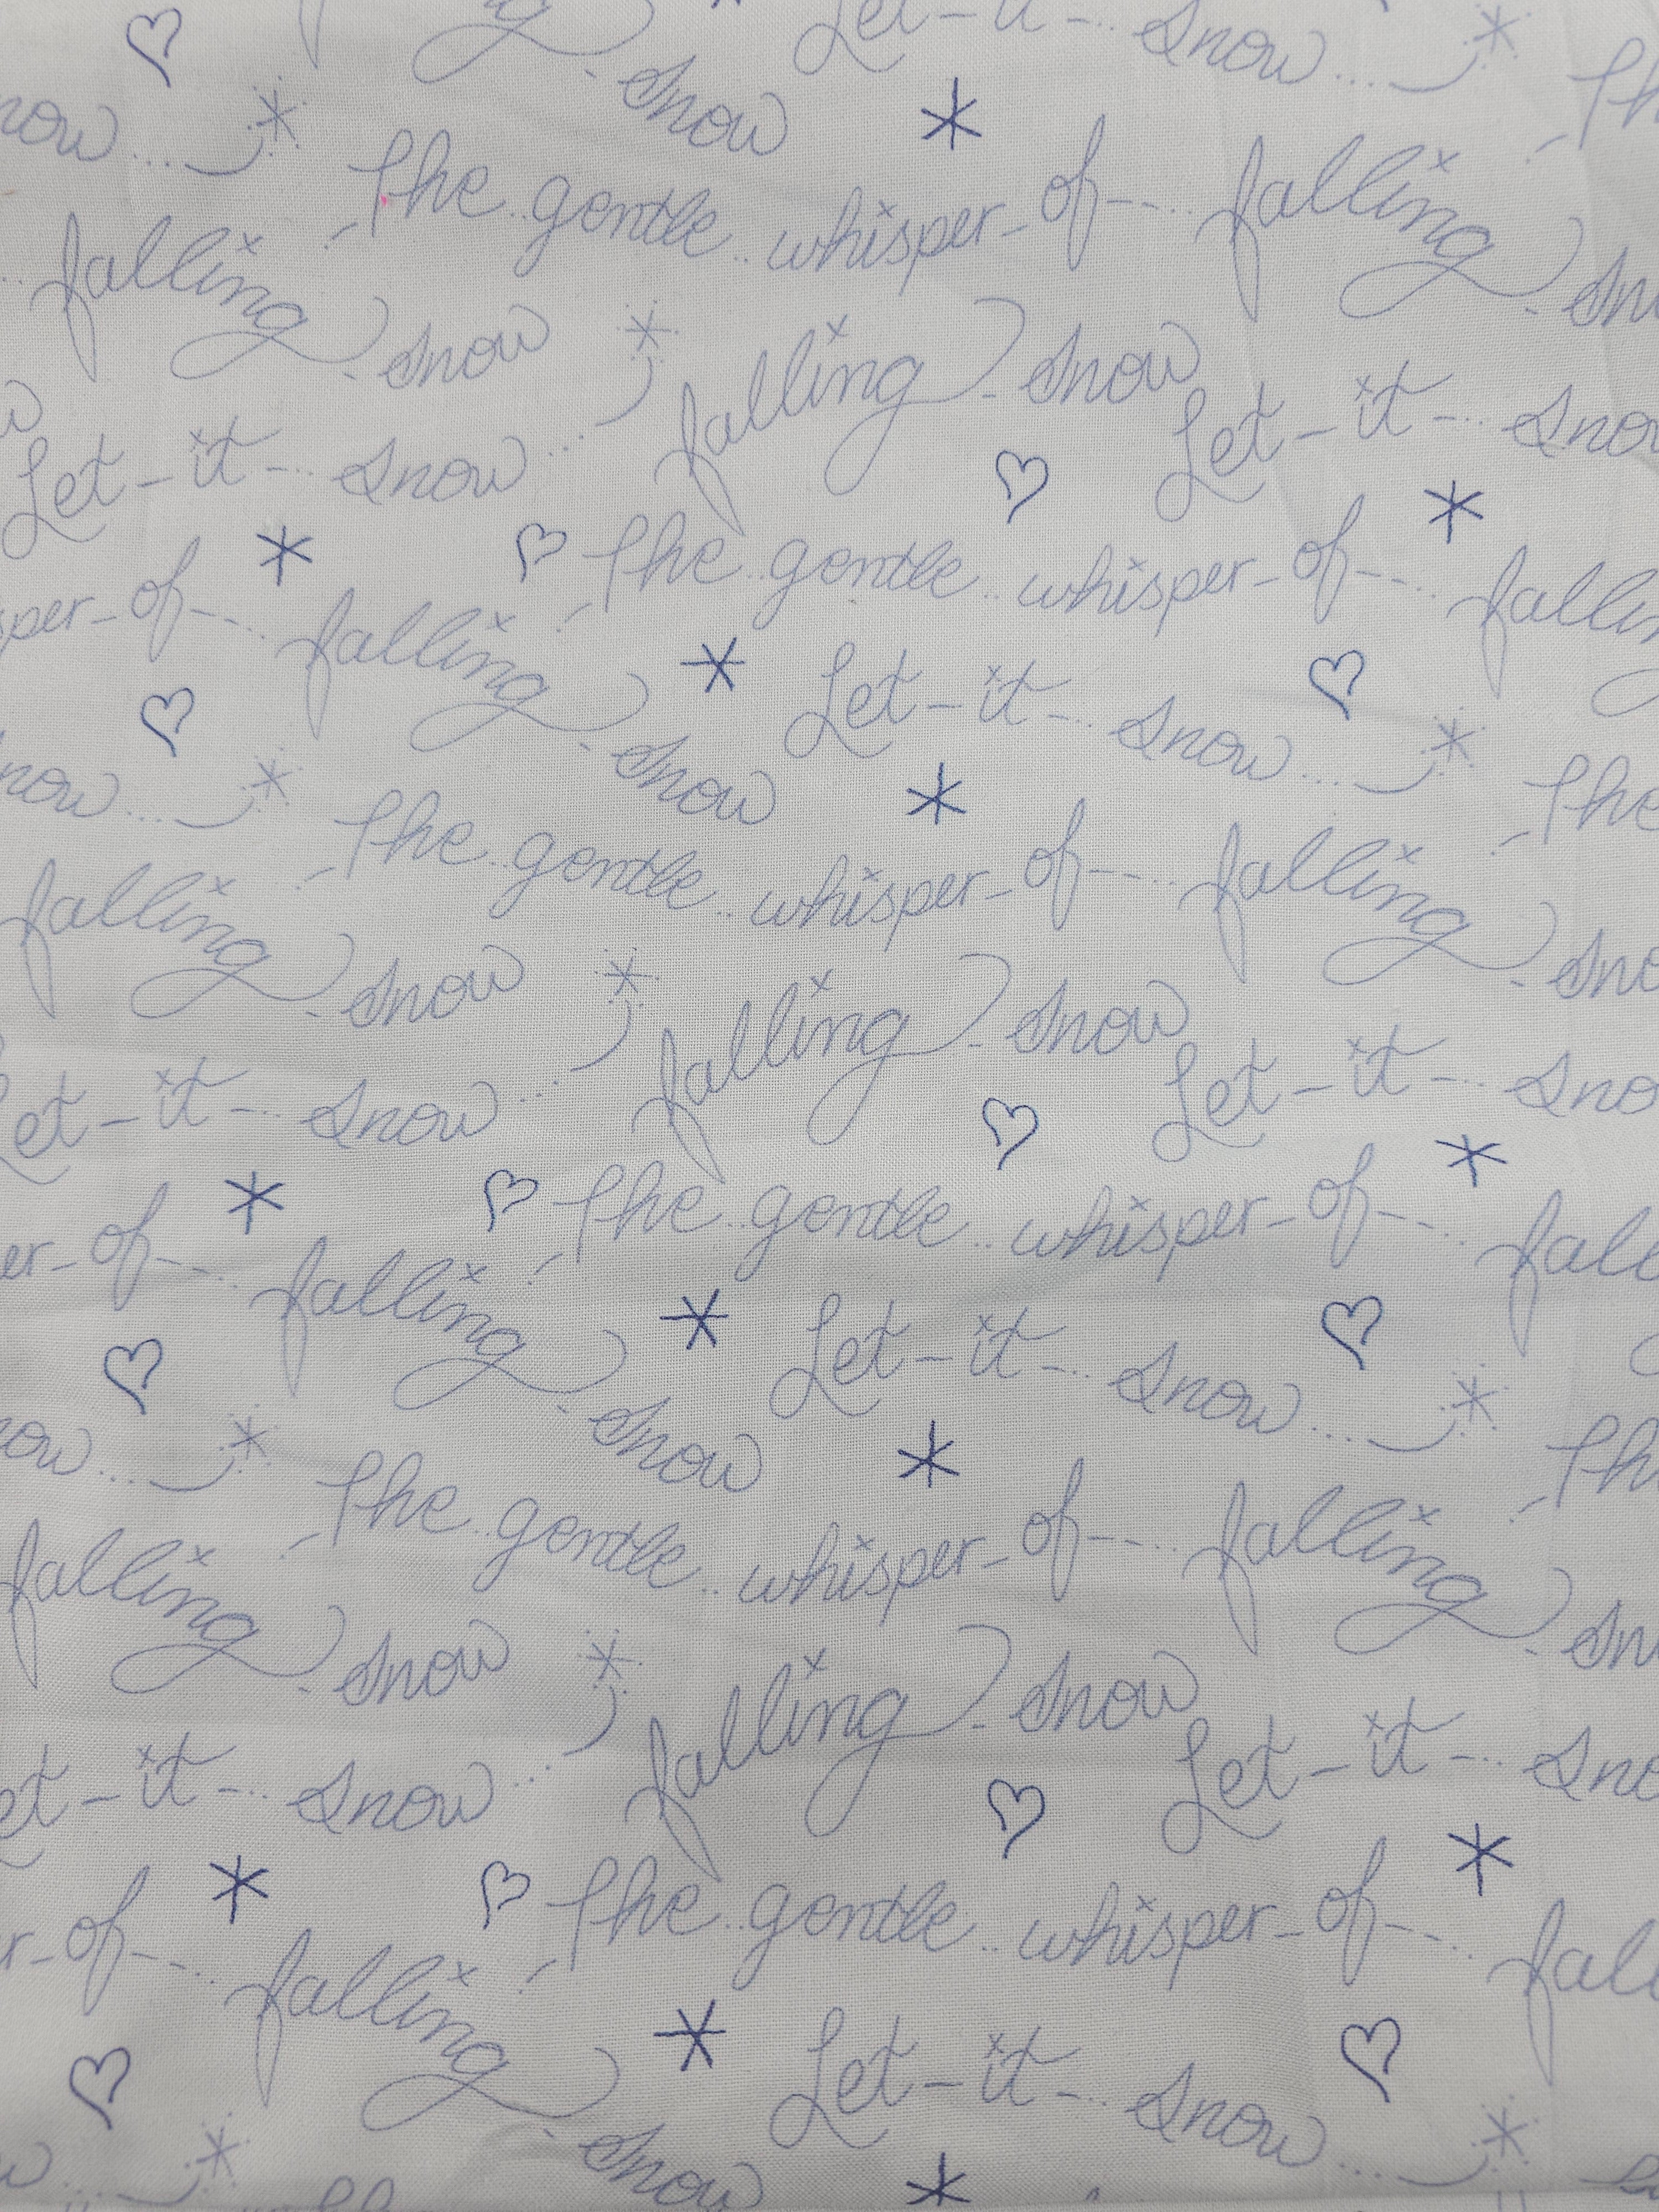 Let-it-... snow....
snow
now....
The gentle.. whisper-of--... falling
falling
snow
falling snow
Let-it-... snow...
Let-it-... snow
The gentle.. whisper-of--...
of--... falling
Let-it-... snow....
snow
now....
The
The gentle.. whisper-of--... falling
falling
snow
falling snow
Let-it-... snow...
Let-it-...
The gentle.. whisper-of--...
of--... falling
Let-it-... snow....
snow
The gentle.. whisper-of--... falling
falling
snow
falling snow
et-it-... snow...
Let-it-...
The gentle.. whisper-of--...
of--... falling
Let-it-... snow....
snow